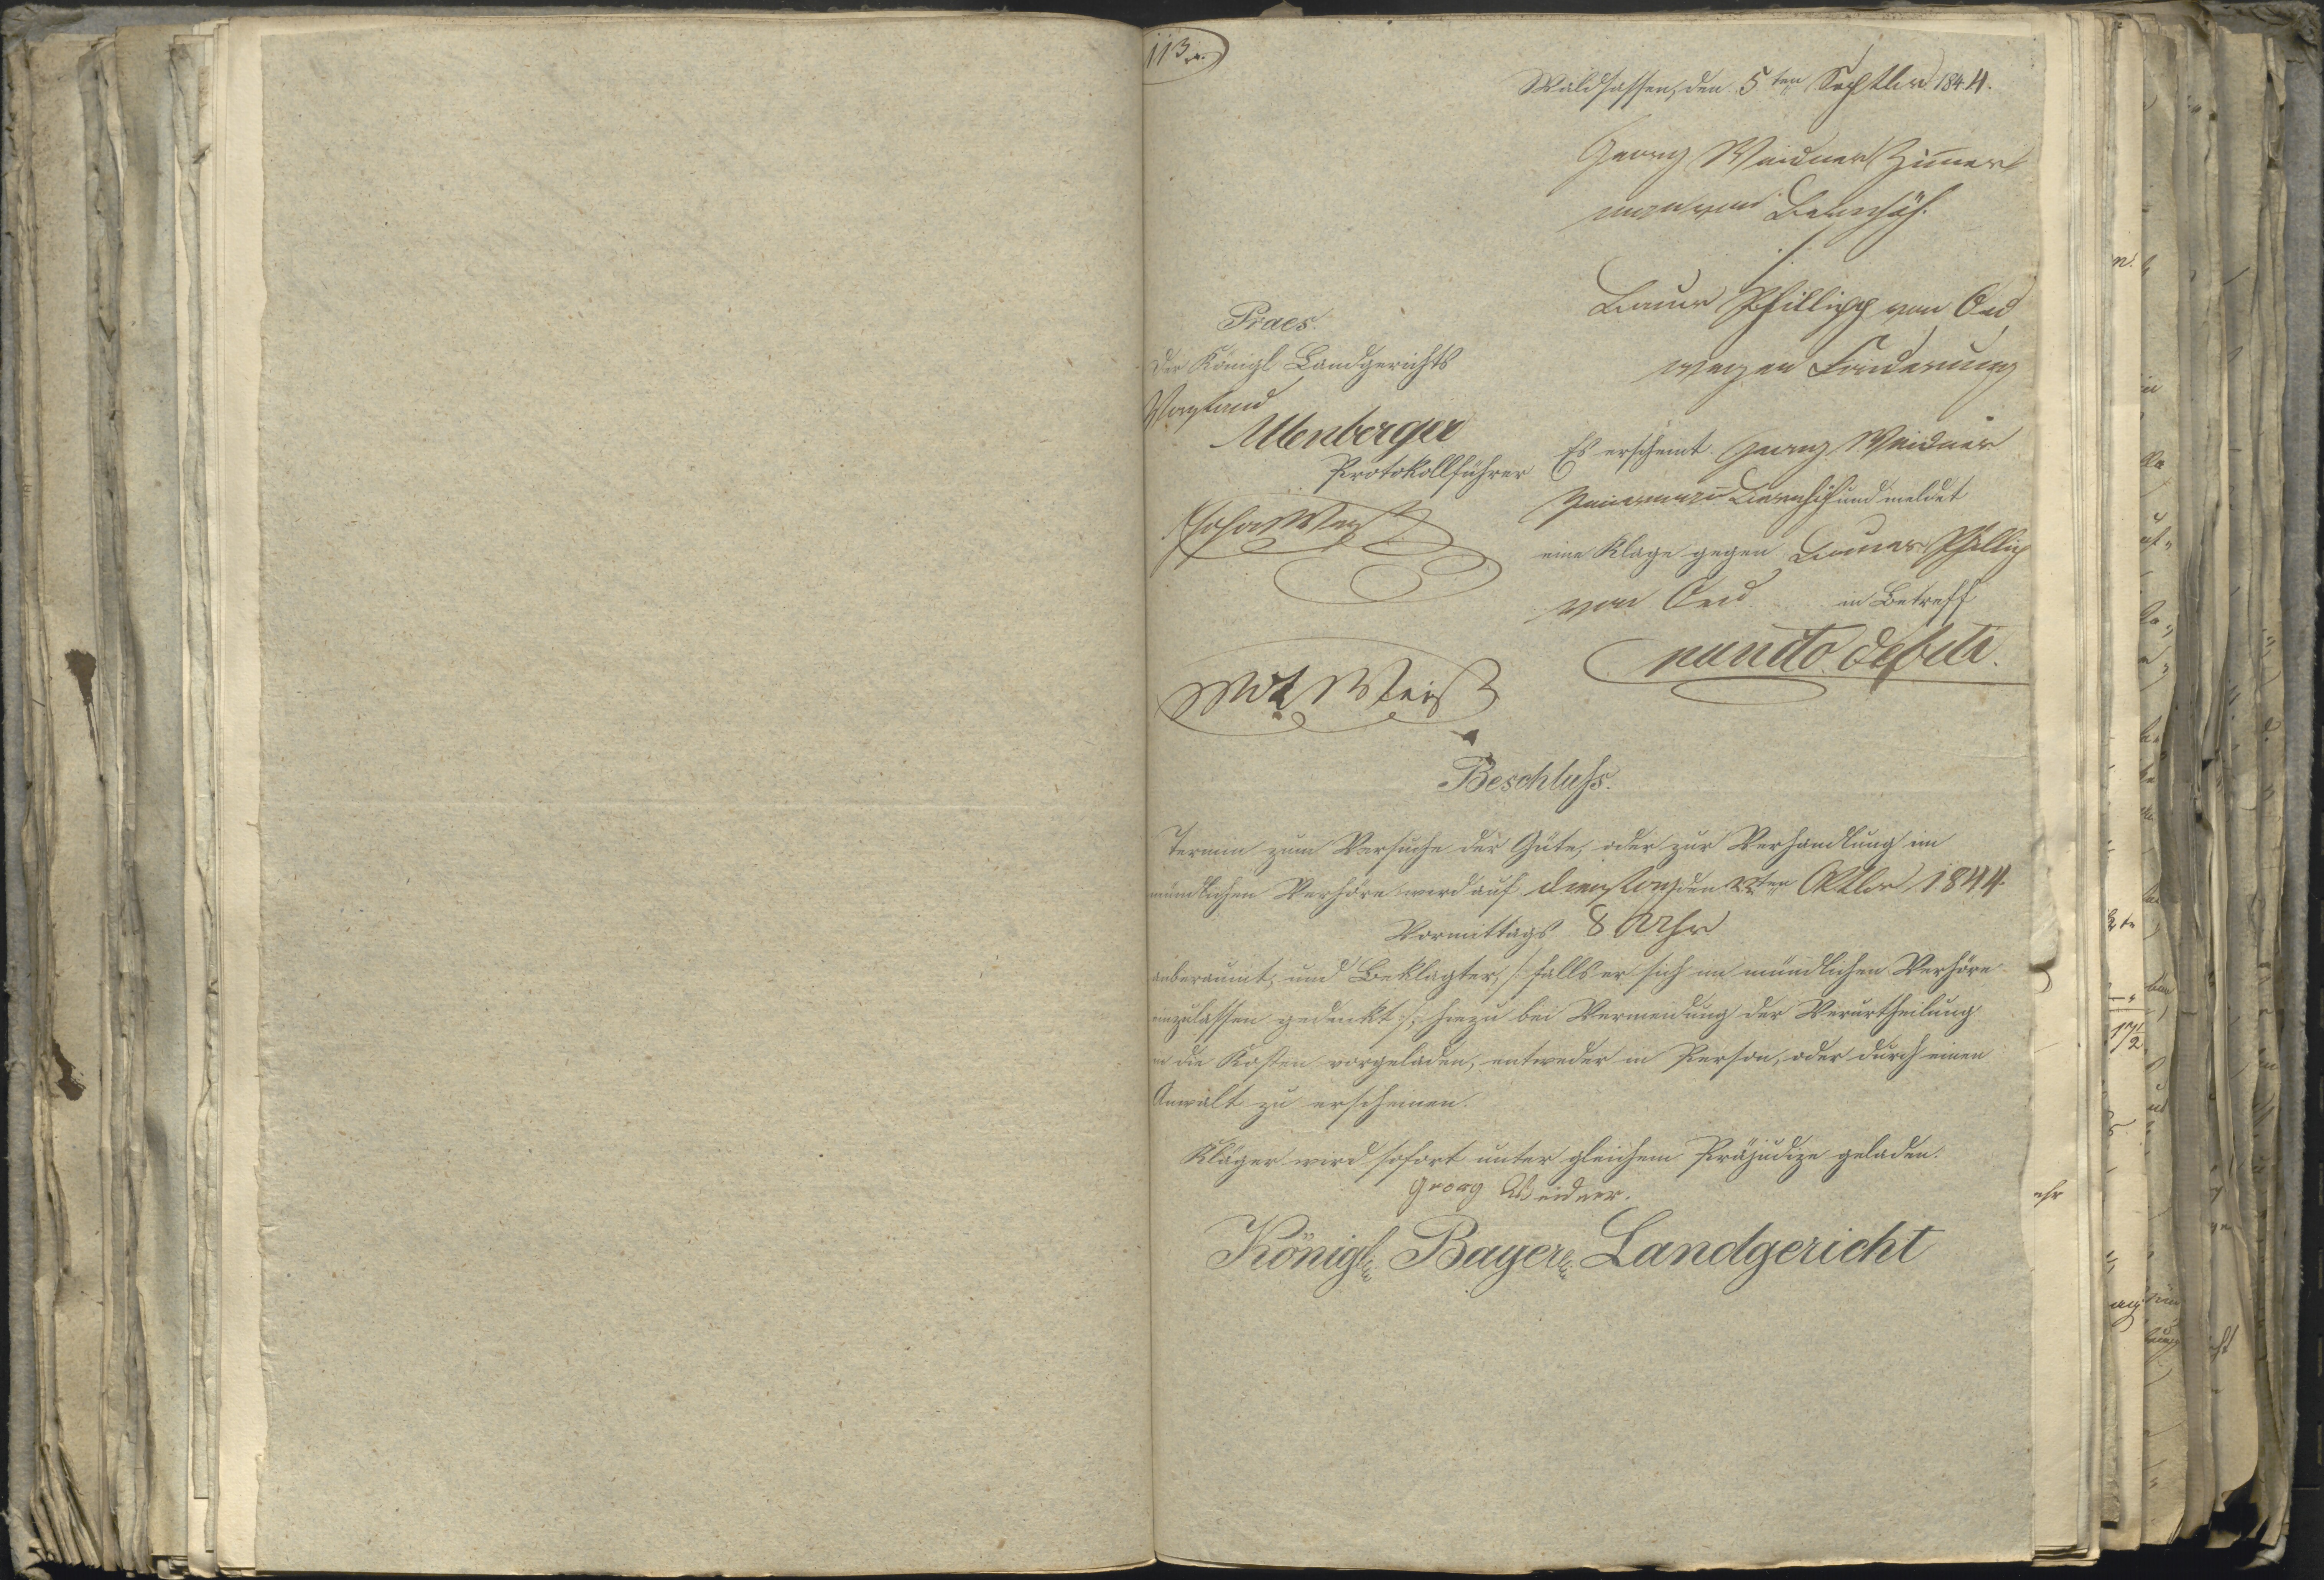 113
Waldsassen, den 5ten Septbr 1844.
Georg Weidner Zimer
man von
./.
Bauer Phillipp von Oed
wegen Forderung
Praes.
Der Königl Landgerichts
Vorstand
Protokollführer
Es erscheint Georg Weidner
und meldet
eine Klage gegen Bauer Phillip
von Oed in Betreff
puncto debiti.
Weiß
Beschluss.
Termin zum Versuche der Güte, oder zur Verhandlung im
mündlichen Verhöre wird auf Dienstag den ten Oktbr 1844.
Vormittags 8 Uhr
anberaumt, und Beklagter, /: falls er sich im mündlichen Verhöre
einzulassen gedenkt :/, hiezu bei Vermeidung der Verurtheilung
in die Kosten vorgeladen, entweder in Person, oder durch einen
Anwalt zu erscheinen.
Kläger wird sofort unter gleichem Präjudize geladen.
Georg Weidner.
Königl. Bayer. Landgericht